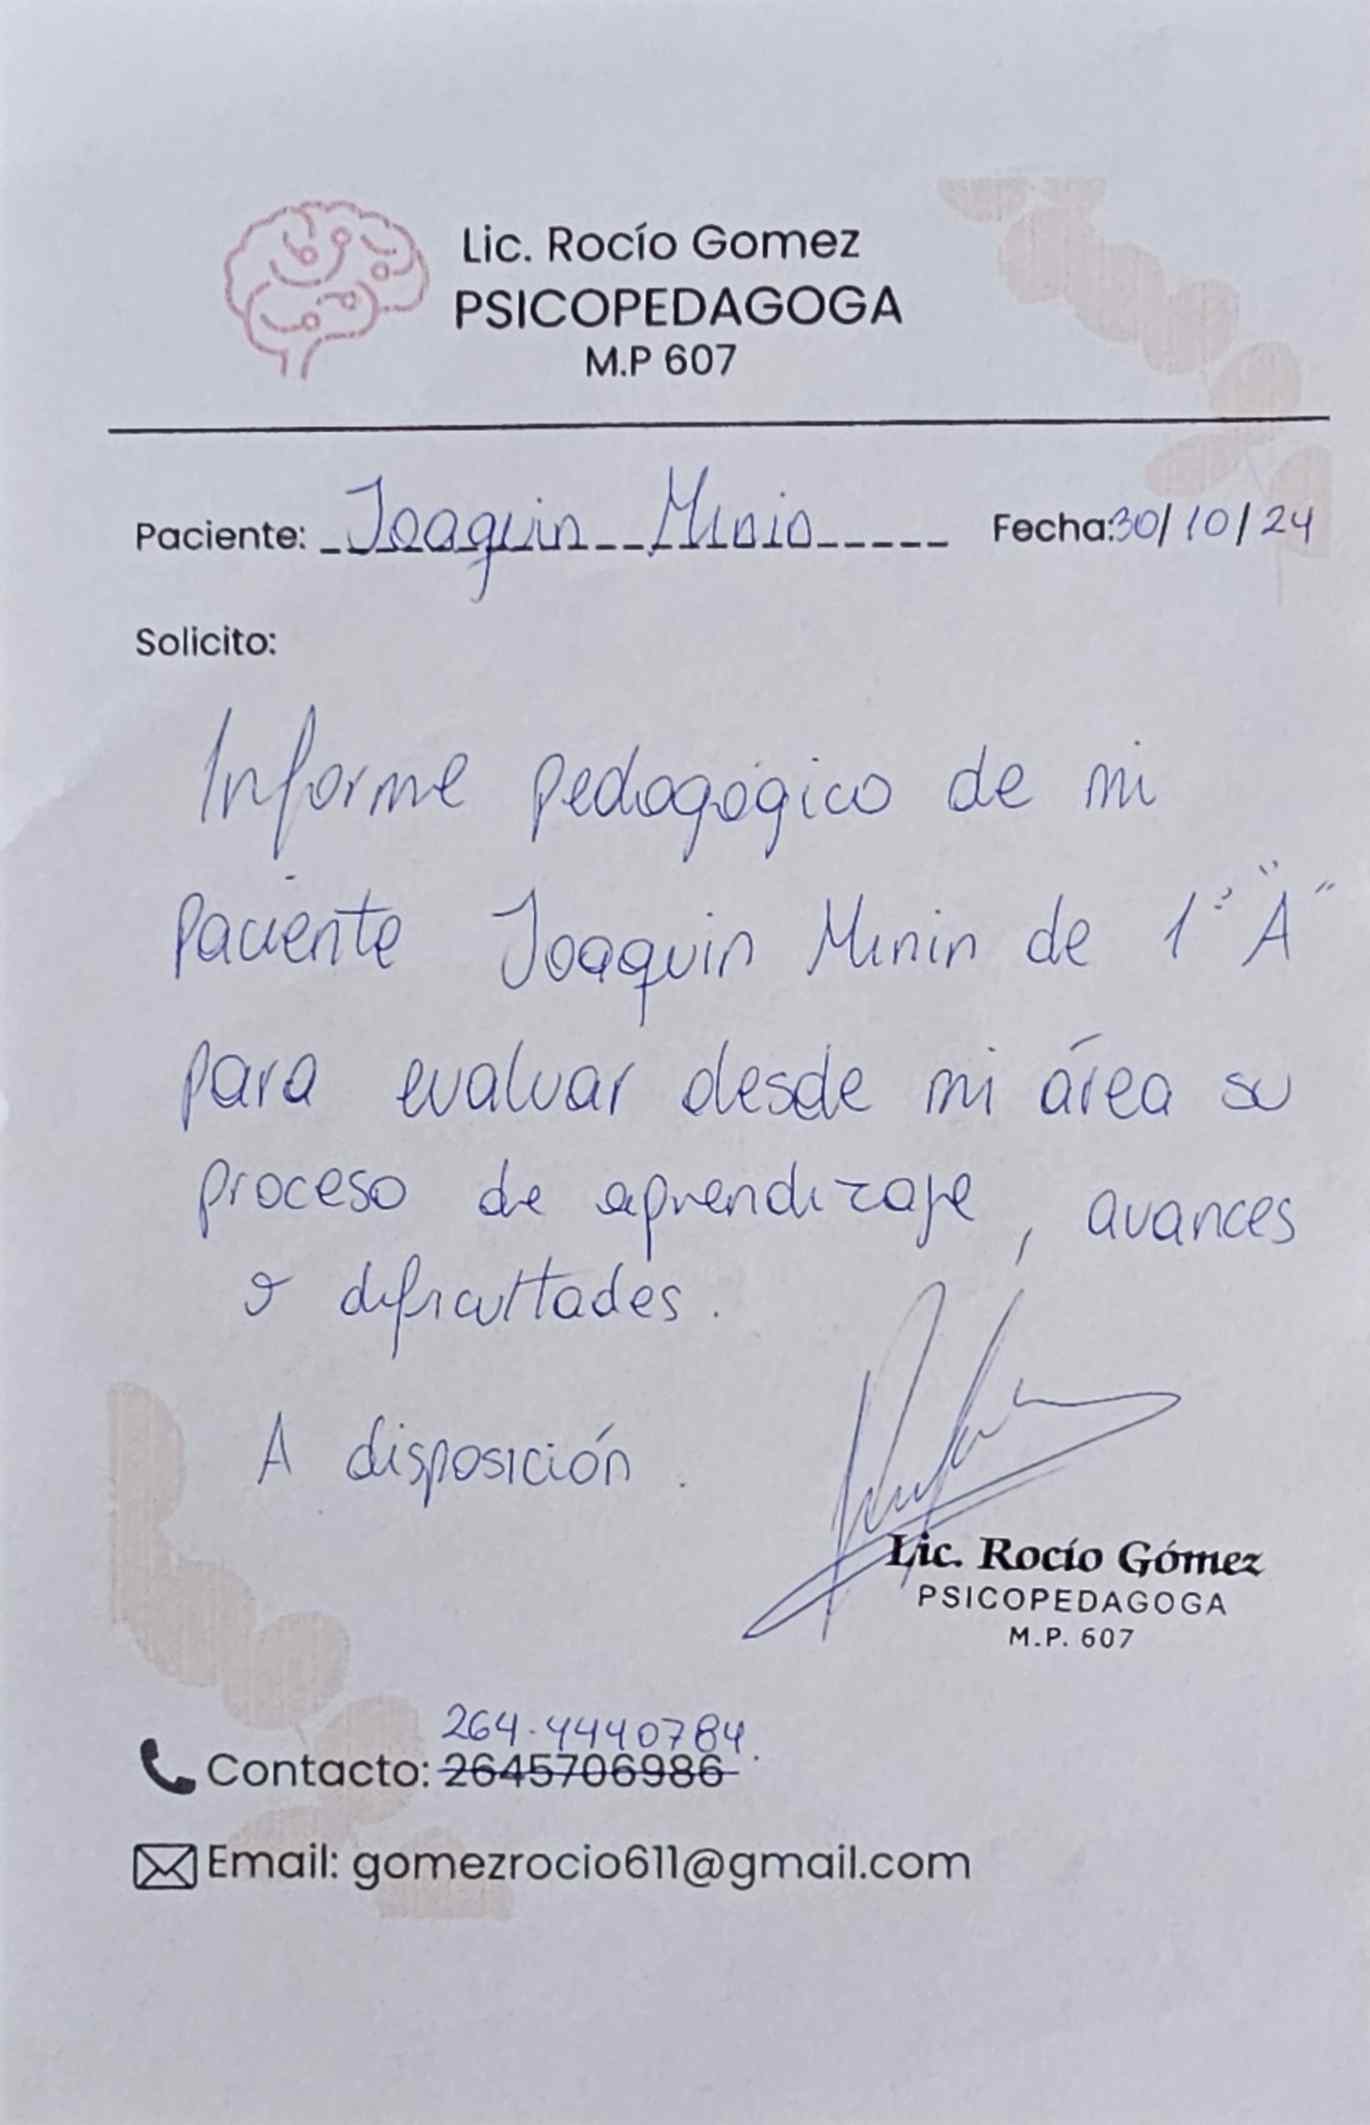 Lic. Rocío Gomez
PSICOPEDAGOGA
M.P 607
Paciente: Joaquin Minin Fecha: 30/10/24
Solicito:
Informe pedagógico de mi
paciente Joaquin Minin de 1° "A"
para evaluar desde mi área su
proceso de aprendizaje, avances
o dificultades.
A disposición.
Lic. Rocío Gómez
PSICOPEDAGOGA
M.P. 607
264-4440784.
Contacto: 2645706986
Email: gomezrocio611@gmail.com